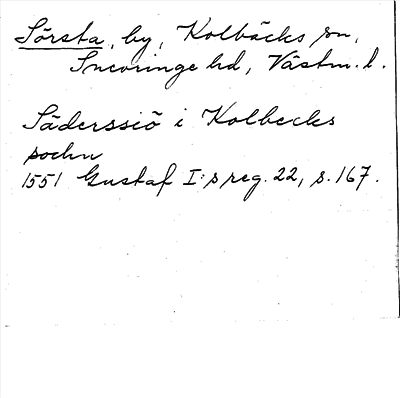 Sörsta, by, Kolbäcks sn,
Snevringe hd, Västm. l.
Säderssiö i Kolbecks
sochn
1551 Gustaf I:s reg. 22, s. 167.